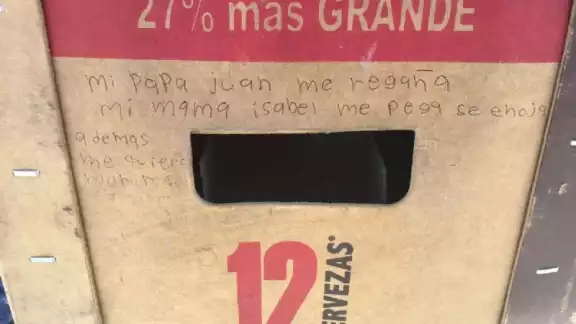 27% más GRANDE
mi papa juan me regaña
mi mama isabel me pega se enoja
ademas
me quiere
12
CERVEZAS